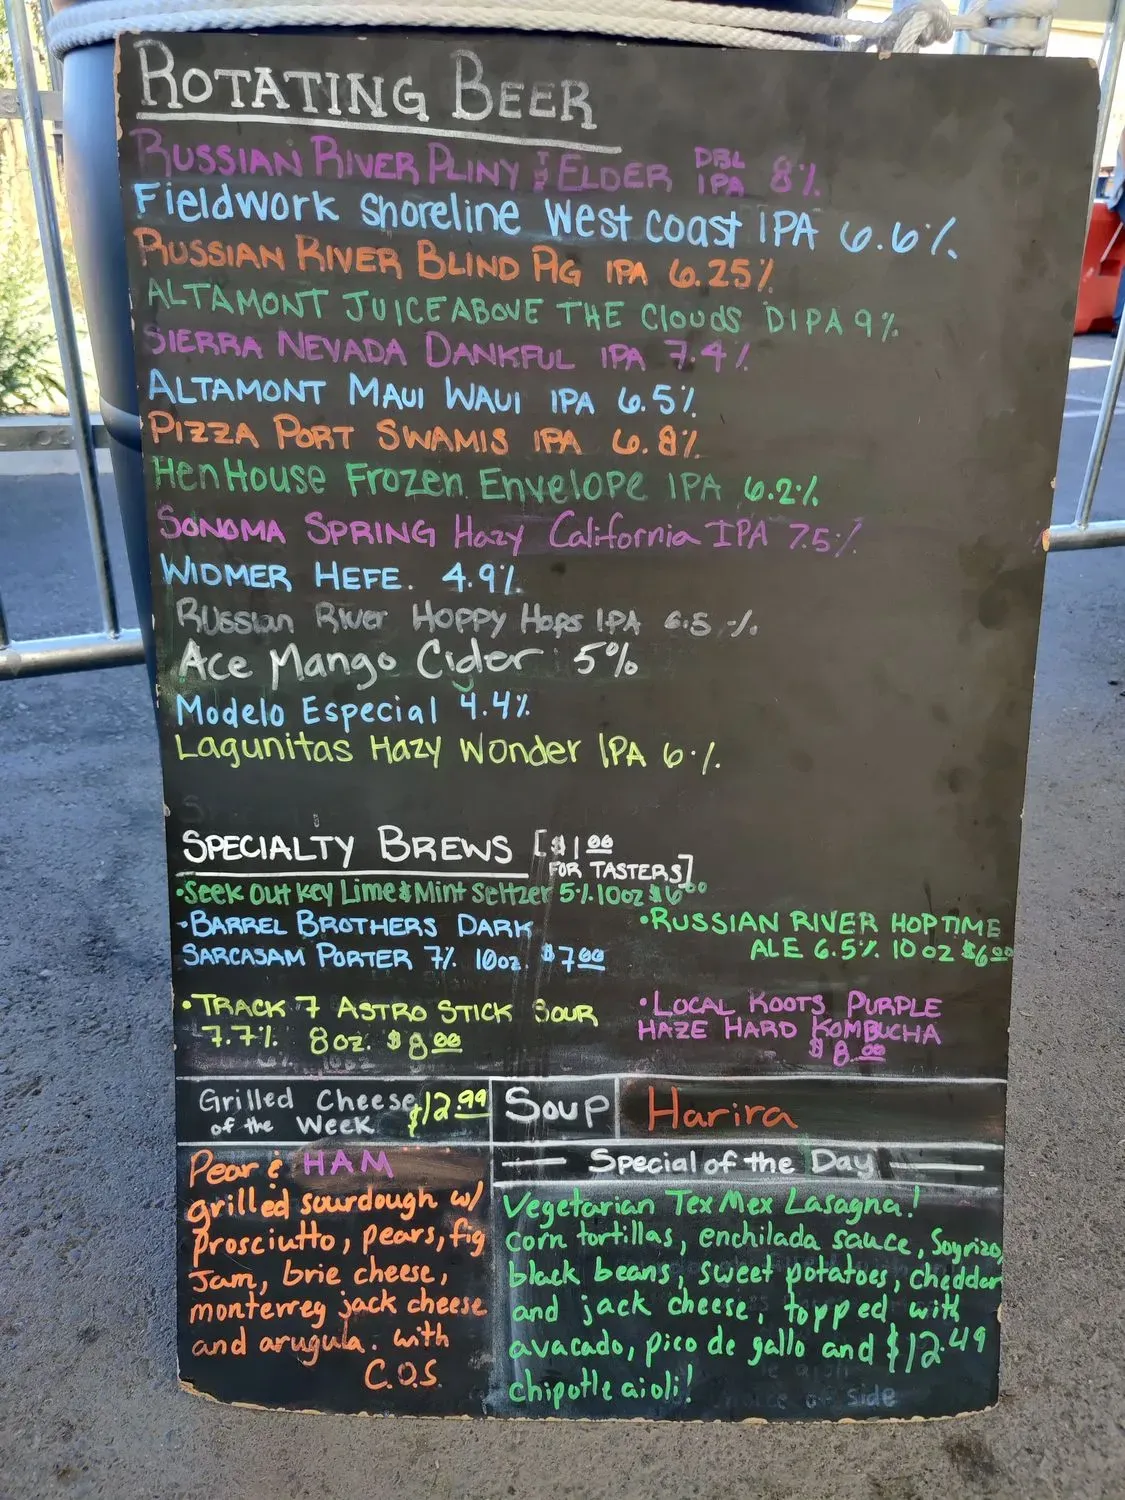 ROTATING BEER
RUSSIAN RIVER PLINY THE ELDER DBL IPA 8%
Fieldwork Shoreline West Coast IPA 6.6%
RUSSIAN RIVER BLIND PIG IPA 6.25%
ALTAMONT JUICE ABOVE THE ClOUdS DIPA 9%
SIERRA NEVADA DANKFUL IPA 7.4%
ALTAMONT MAUI WAUI IPA 6.5%
PIZZA PORT SWAMIS IPA 6.8%
HenHouse Frozen Envelope IPA 6.2%
SONOMA SPRING Hazy California IPA 7.5%
WIDMER HEFE. 4.9%
Russian River Hoppy Hops IPA 6.5%
Ace Mango Cider 5%
Modelo Especial 4.4%
Lagunitas Hazy Wonder IPA 6%
SPECIALTY BREWS [$1.00
FOR TASTERS]
•Seek Out Key Lime & Mint Seltzer 5% 10oz $6.00
-BARREL BROTHERS DARK
SARCASAM PORTER 7% 10oz. $7.00
•RUSSIAN RIVER HOPTIME
ALE 6.5% 10 oz $6.00
•TRACK 7 ASTRO STICK SOUR
7.7% 8oz. $8.00
•LOCAL ROOTS PURPLE
HAZE HARD KOMBUCHA
$8.00
Grilled Cheese
of the Week $12.99
Pear & HAM
grilled sourdough w/
prosciutto, pears, fig
Jam, brie cheese,
monterrey jack cheese
and arugula. with
C.O.S.
Soup Harira
Special of the Day
Vegetarian Tex Mex Lasagna!
corn tortillas, enchilada sauce, Soyrizo,
black beans, sweet potatoes, cheddar
and jack cheese, topped with
avacado, pico de gallo and $12.49
chipotle aioli!
of side